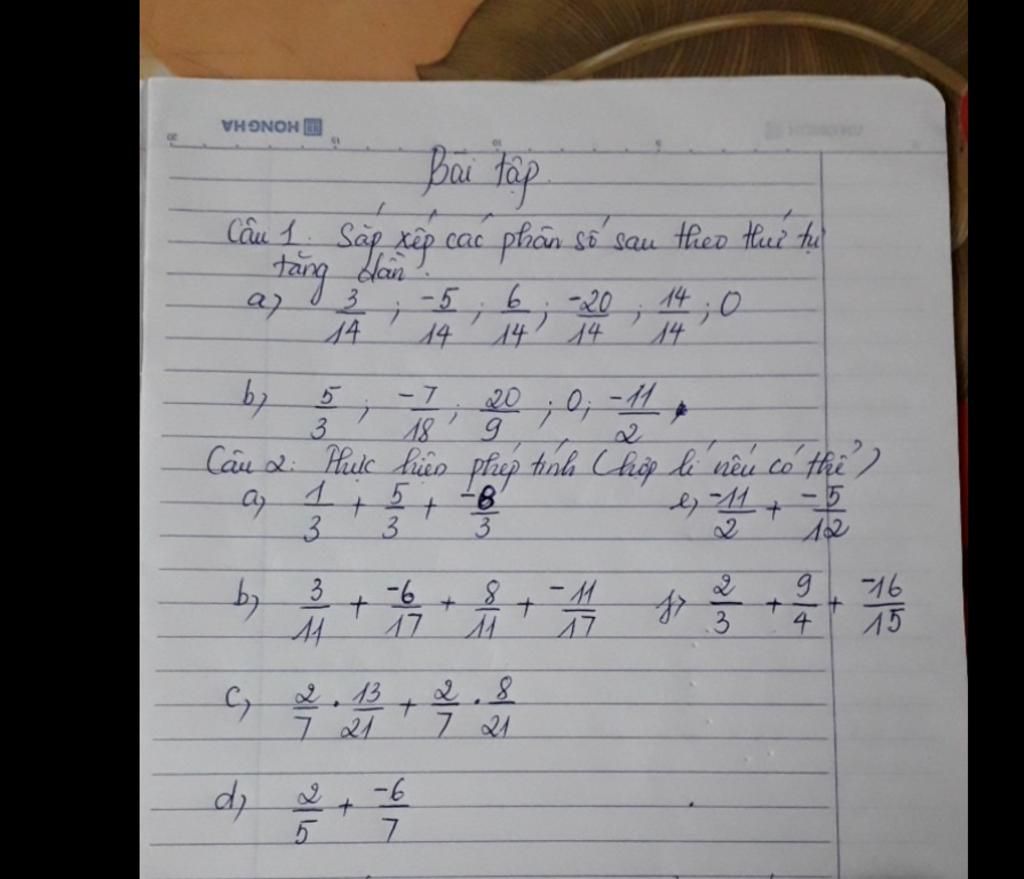 HONG HA
20 15 10 5
Bài tập
Câu 1. Sắp xếp các phân số sau theo thứ tự
tăng dần.
a) 3/14 ; -5/14 ; 6/14 ; -20/14 ; 14/14 ; 0
b) 5/3 ; -7/18 ; 20/9 ; 0 ; -11/2
Câu 2: Thực hiện phép tính (hợp lí nếu có thể)
a) 1/3 + 5/3 + -8/3 e) -11/2 + -5/12
b) 3/11 + -6/17 + 8/11 + -11/17 f) 2/3 + 9/4 + -16/15
c) 2/7 . 13/21 + 2/7 . 8/21
d) 2/5 + -6/7